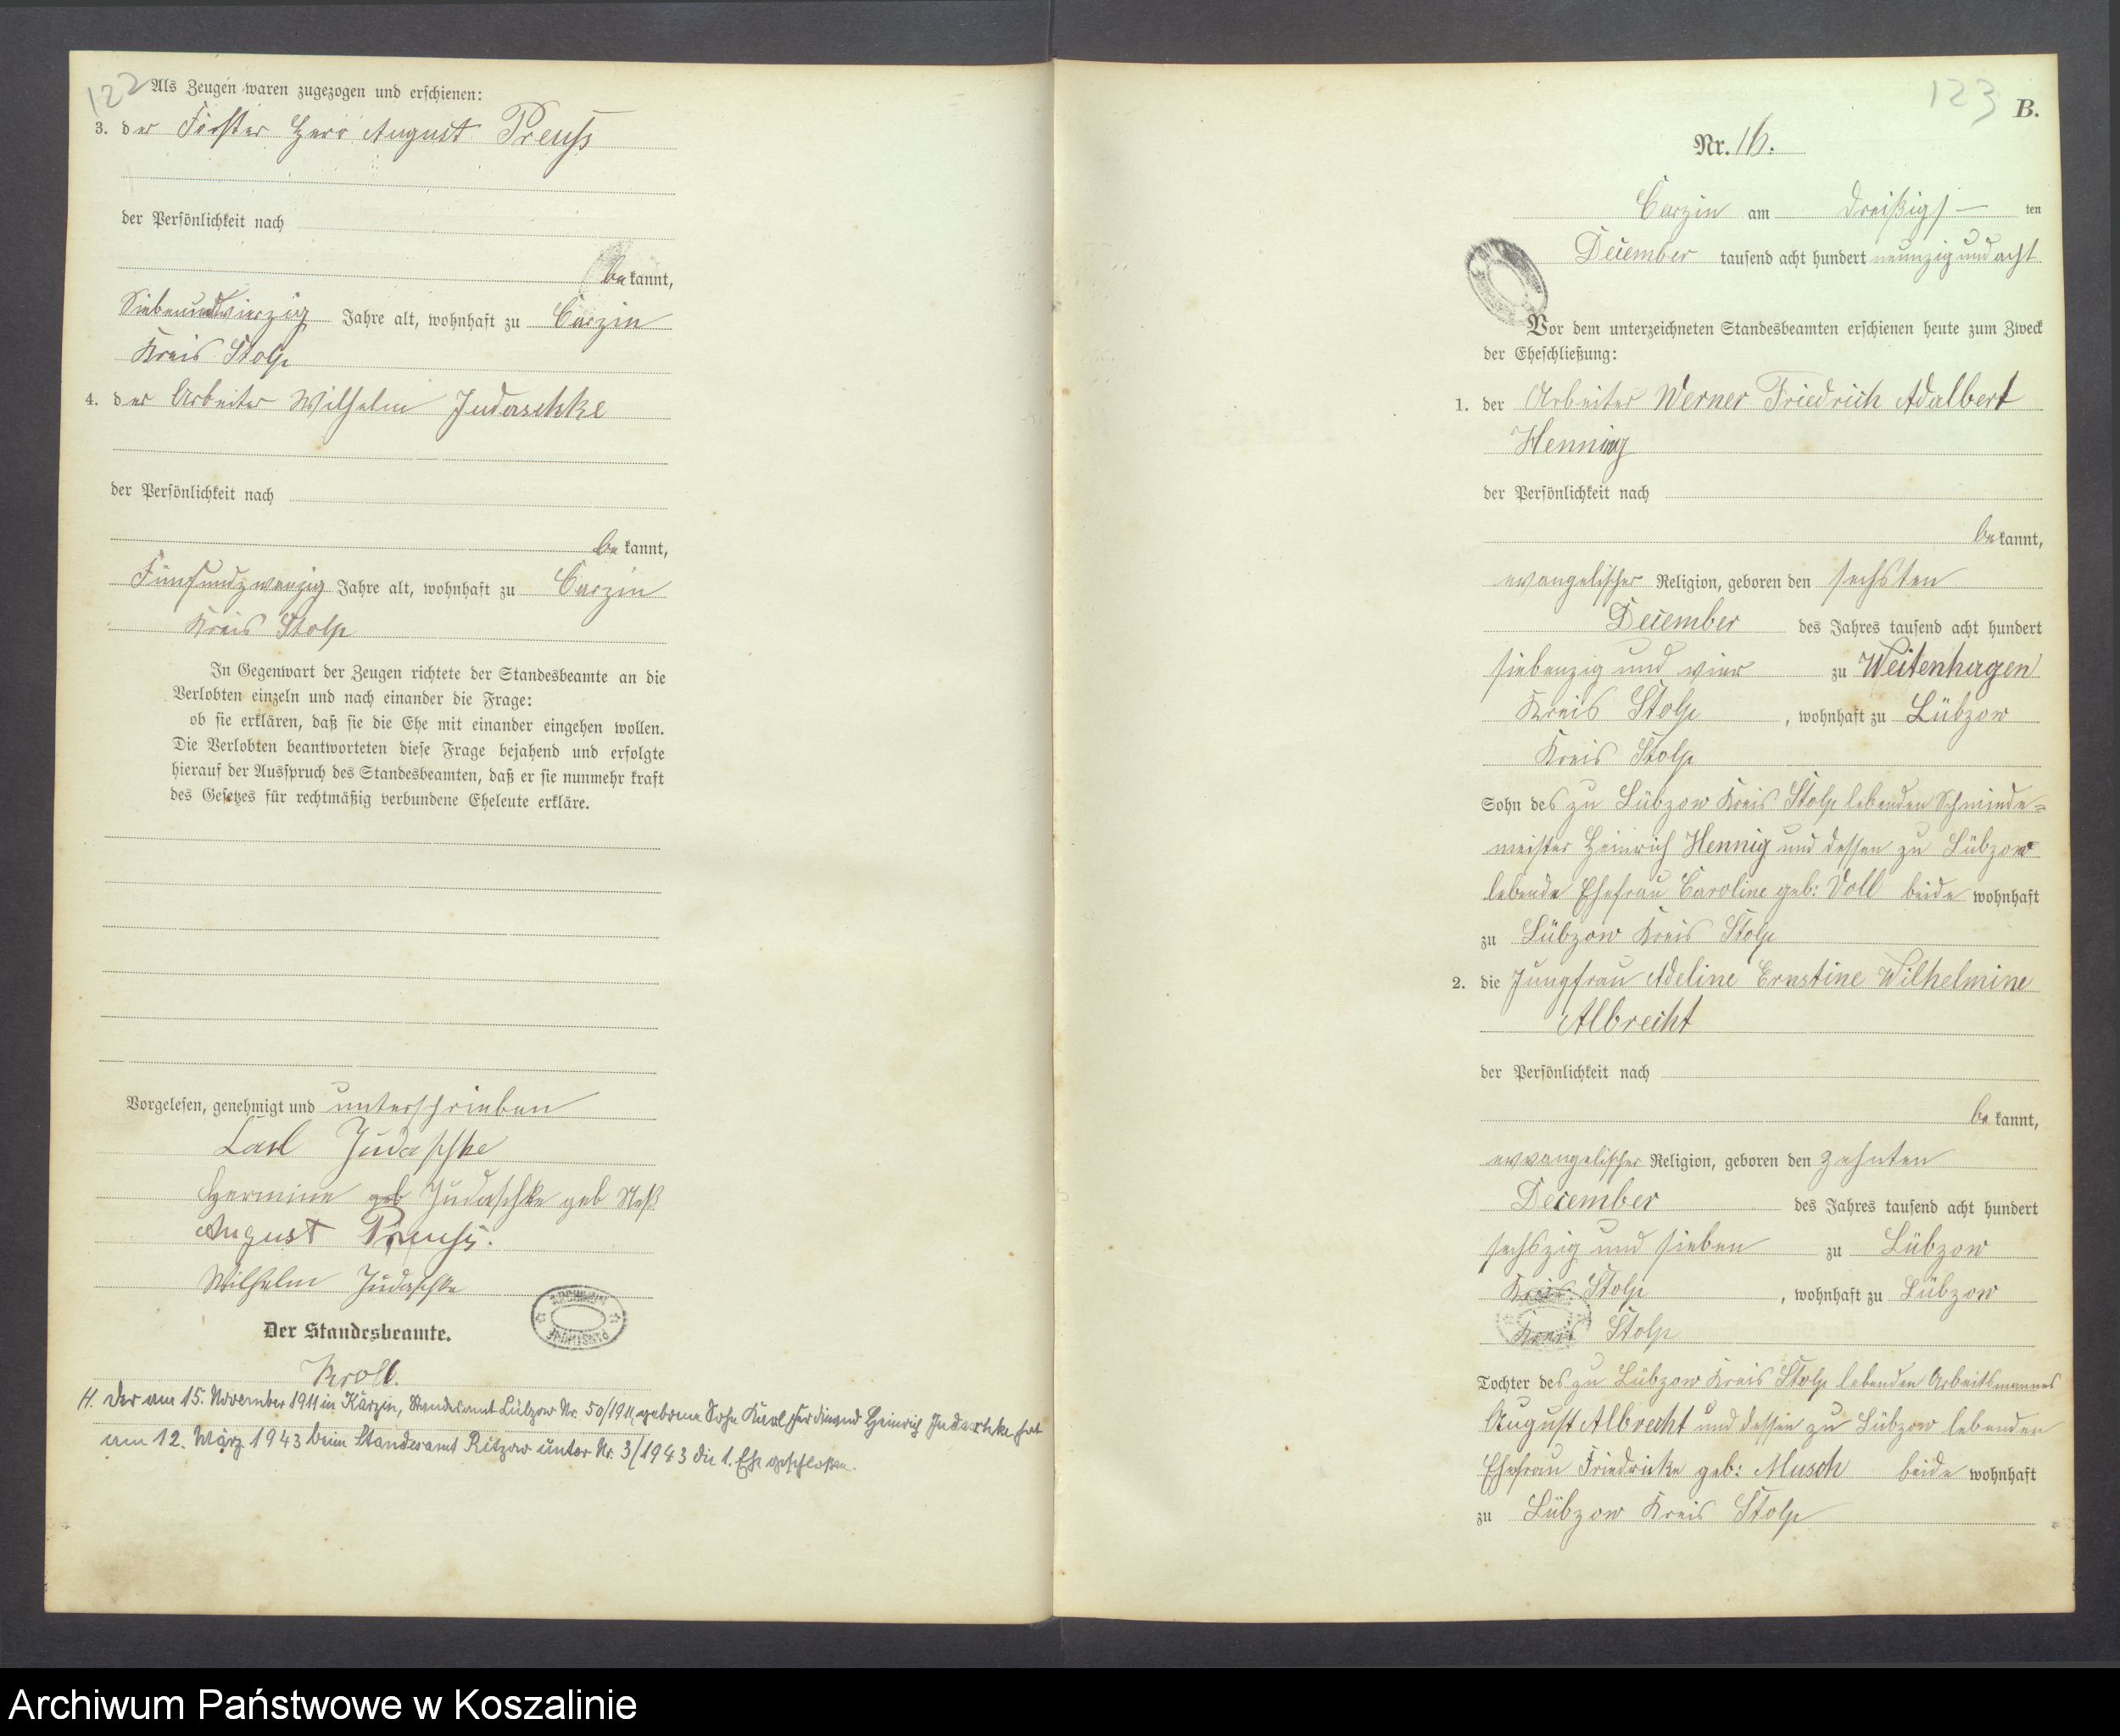 122
Als Zeugen waren zugezogen und erschienen:
3. der Förster Herr August Preuß
der Persönlichkeit nach
bekannt,
Siebenundvierzig Jahre alt, wohnhaft zu Carzin
Kreis Stolp
4. der Arbeiter Wilhelm Judaschke
der Persönlichkeit nach
be kannt,
Fünfundzwanzig Jahre alt, wohnhaft zu Carzin
Kreis Stolp
In Gegenwart der Zeugen richtete der Standesbeamte an die
Verlobten einzeln und nach einander die Frage:
ob sie erklären, daß sie die Ehe mit einander eingehen wollen.
Die Verlobten beantworteten diese Frage bejahend und erfolgte
hierauf der Ausspruch des Standesbeamten, daß er sie nunmehr kraft
des Gesetzes für rechtmäßig verbundene Eheleute erkläre.
Vorgelesen, genehmigt und unterschrieben
Carl Judaschke
Hermine geb Judaschke geb
August Preuß.
Wilhelm Judaschke
Der Standesbeamte.
Kroll.
H. Der am 15. November 1911 in Karzin, Standesamt Lübzow Nr. 50/1911, geborene Sohn Karl Ferdinand Heinrich Judaschke hat
am 12. März 1943 beim Standesamt Ritzow unter Nr. 3/1943 die 1. Ehe geschlossen.
123
B.
Nr. 16.
Carzin am dreißigs- ten
December tausend acht hundert neunzig und acht
Vor dem unterzeichneten Standesbeamten erschienen heute zum Zweck
der Eheschließung:
1. der Arbeiter Werner Friedrich Adalbert
Hennig
der Persönlichkeit nach
bekannt,
evangelischer Religion, geboren den sechsten
December des Jahres tausend acht hundert
siebenzig und vier zu Weitenhagen
Kreis Stolp, wohnhaft zu Lübzow
Kreis Stolp
Sohn des zu Lübzow Kreis Stolp lebenden Schmiede=
meister Heinrich Hennig und dessen zu Lübzow
lebende Ehefrau Caroline geb: Voll beide wohnhaft
zu Lübzow Kreis Stolp
2. die Jungfrau Adeline Ernstine Wilhelmine
Albrecht
der Persönlichkeit nach
be kannt,
evvangelischer Religion, geboren den zehnten
December des Jahres tausend acht hundert
sechszig und sieben zu Lübzow
Kreis Stolp, wohnhaft zu Lübzow
Kreis Stolp
Tochter des zu Lübzow Kreis Stolp lebenden Arbeitsmannes
August Albrecht und dessen zu Lübzow lebenden
Ehefrau Friedricke geb: Musch beide wohnhaft
zu Lübzow Kreis Stolp
Archiwum Państwowe w Koszalinie